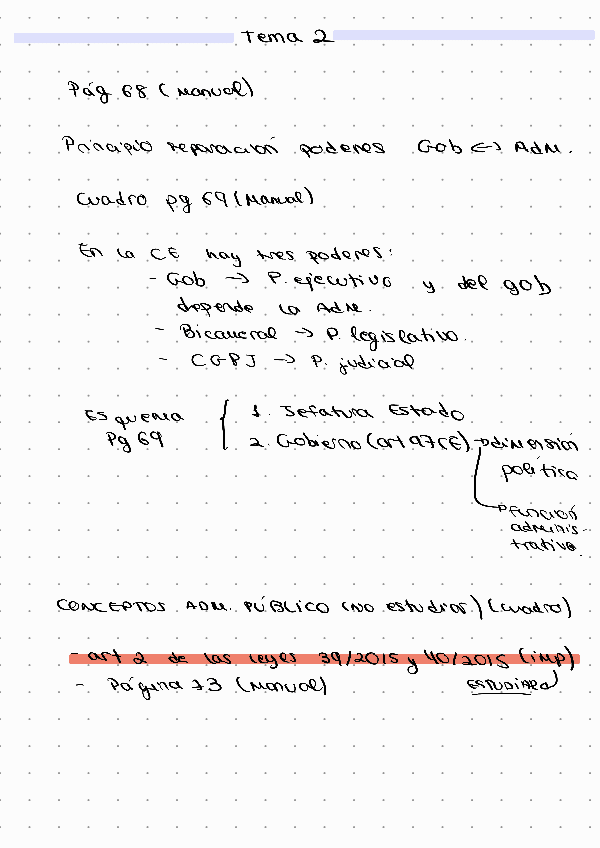 Tema 2
Pág 68 (Manual)
Principio separación poderes Gob <-> Adm.
Cuadro pg 69 (Manual)
En la CE hay tres poderes:
- Gob -> P. ejecutivo y del gob
depende la Adm.
- Bicameral -> P. legislativo.
- CGPJ -> P. judicial
Esquema
Pg 69
1. Jefatura Estado
2. Gobierno (art 97CE) -> dimensión
política
-> Función
adminis-
trativa
CONCEPTOS ADM. PÚBLICO (no estudiar) (cuadro)
- art 2 de las leyes 39/2015 y 40/2015 (imp)
- Página 73 (Manual)
ESTUDIAR